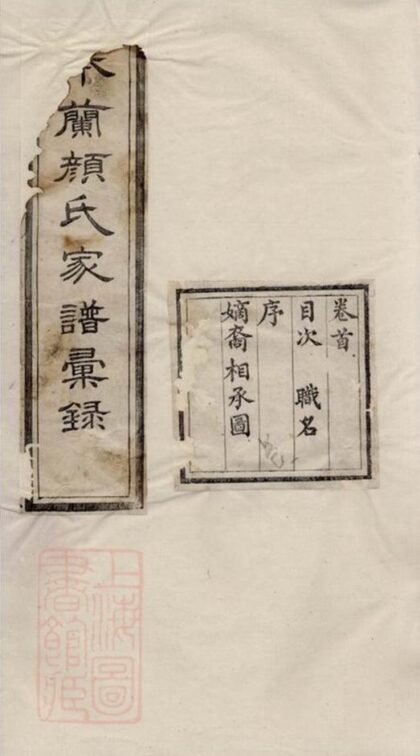 蘭顔氏家譜彙錄
卷首
目次 職名
序
嫡裔相承圖
上海圖
書館藏